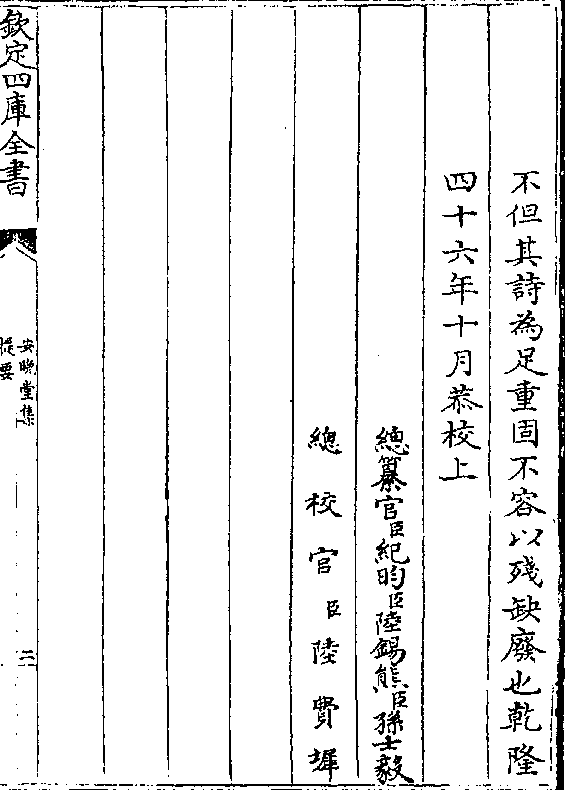 不但其詩為足重固不容以殘缺廢也乾隆
四十六年十月恭校上
總纂官臣紀昀臣陸錫熊臣孫士毅
總校官臣陸費墀
欽定四庫全書
安晚堂集
提要
二